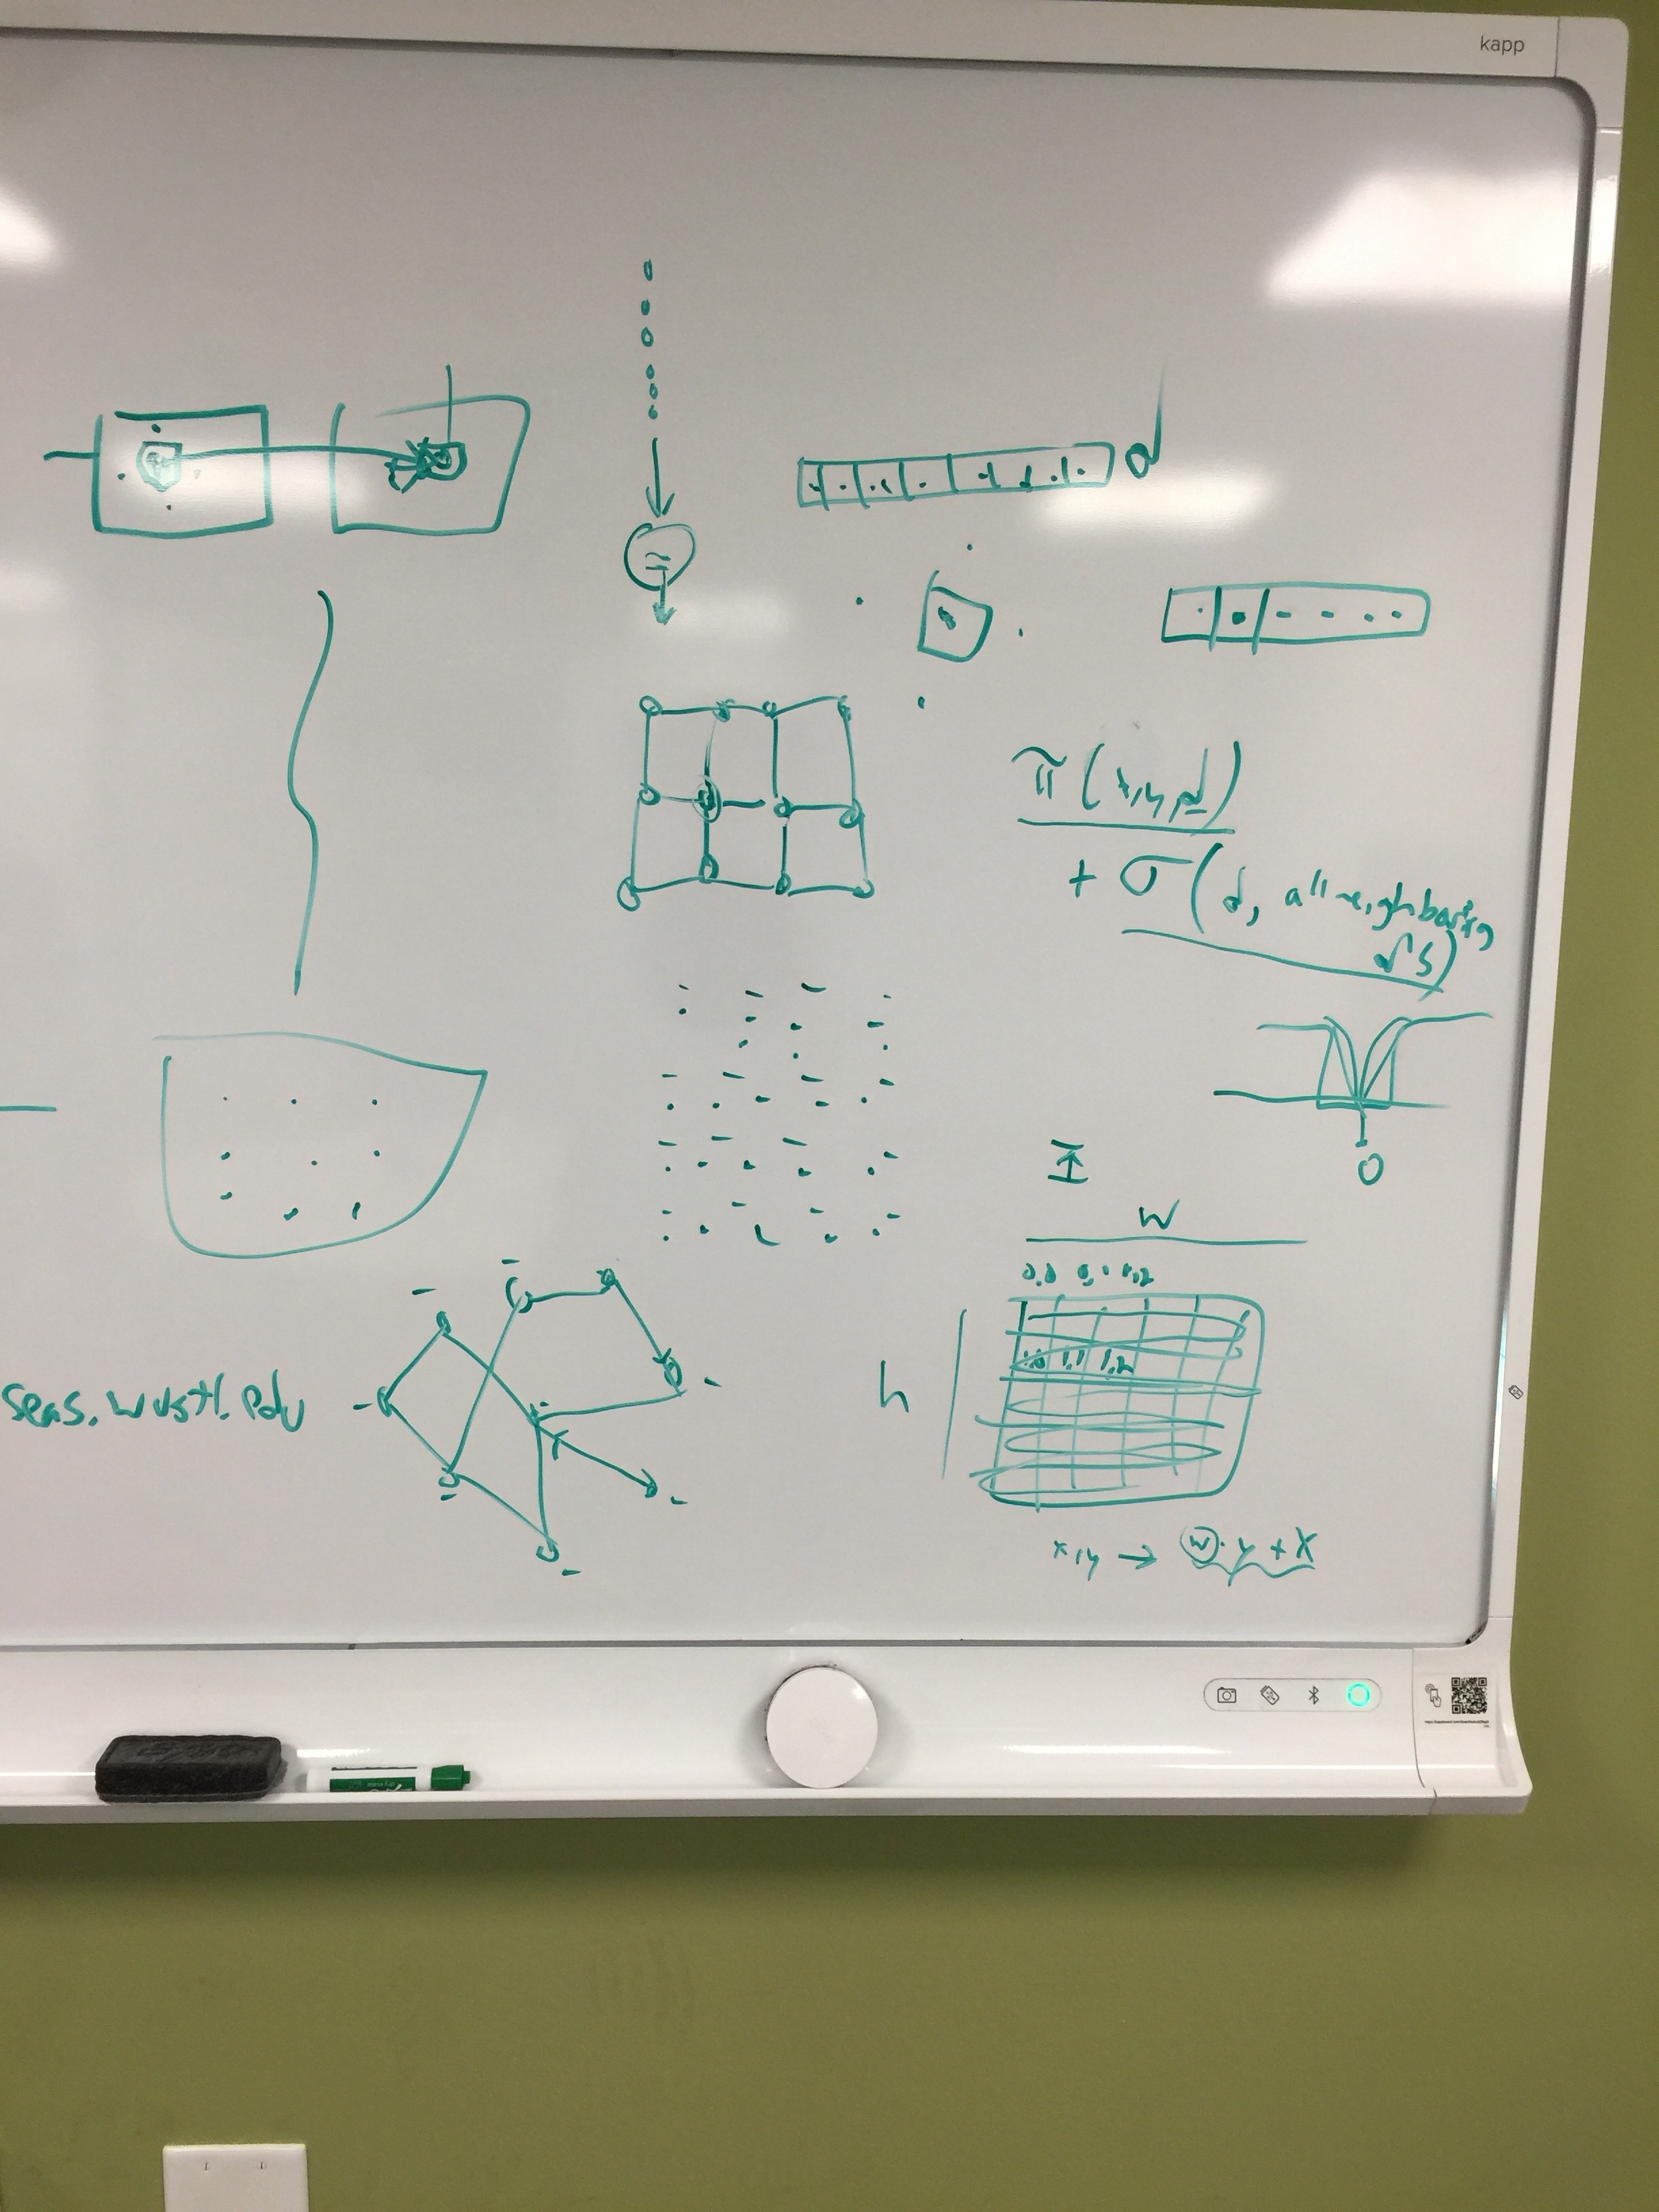 kapp
d
π(x,y,d)
+ σ(d, all neighboring
d's)
0
w
0,0 0,1 0,2
1,0 1,1 1,2
h
seas.wustl.edu
x,y → w·y + x